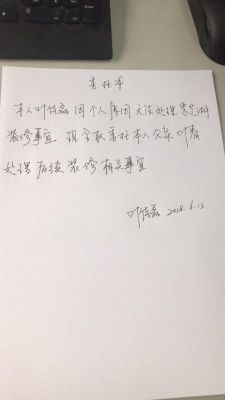 委托书
本人叶佳磊因个人原因无法处理
装修事宜,现全权委托本人父亲叶
处理后续装修相关事宜
叶佳磊 2018.6.13.